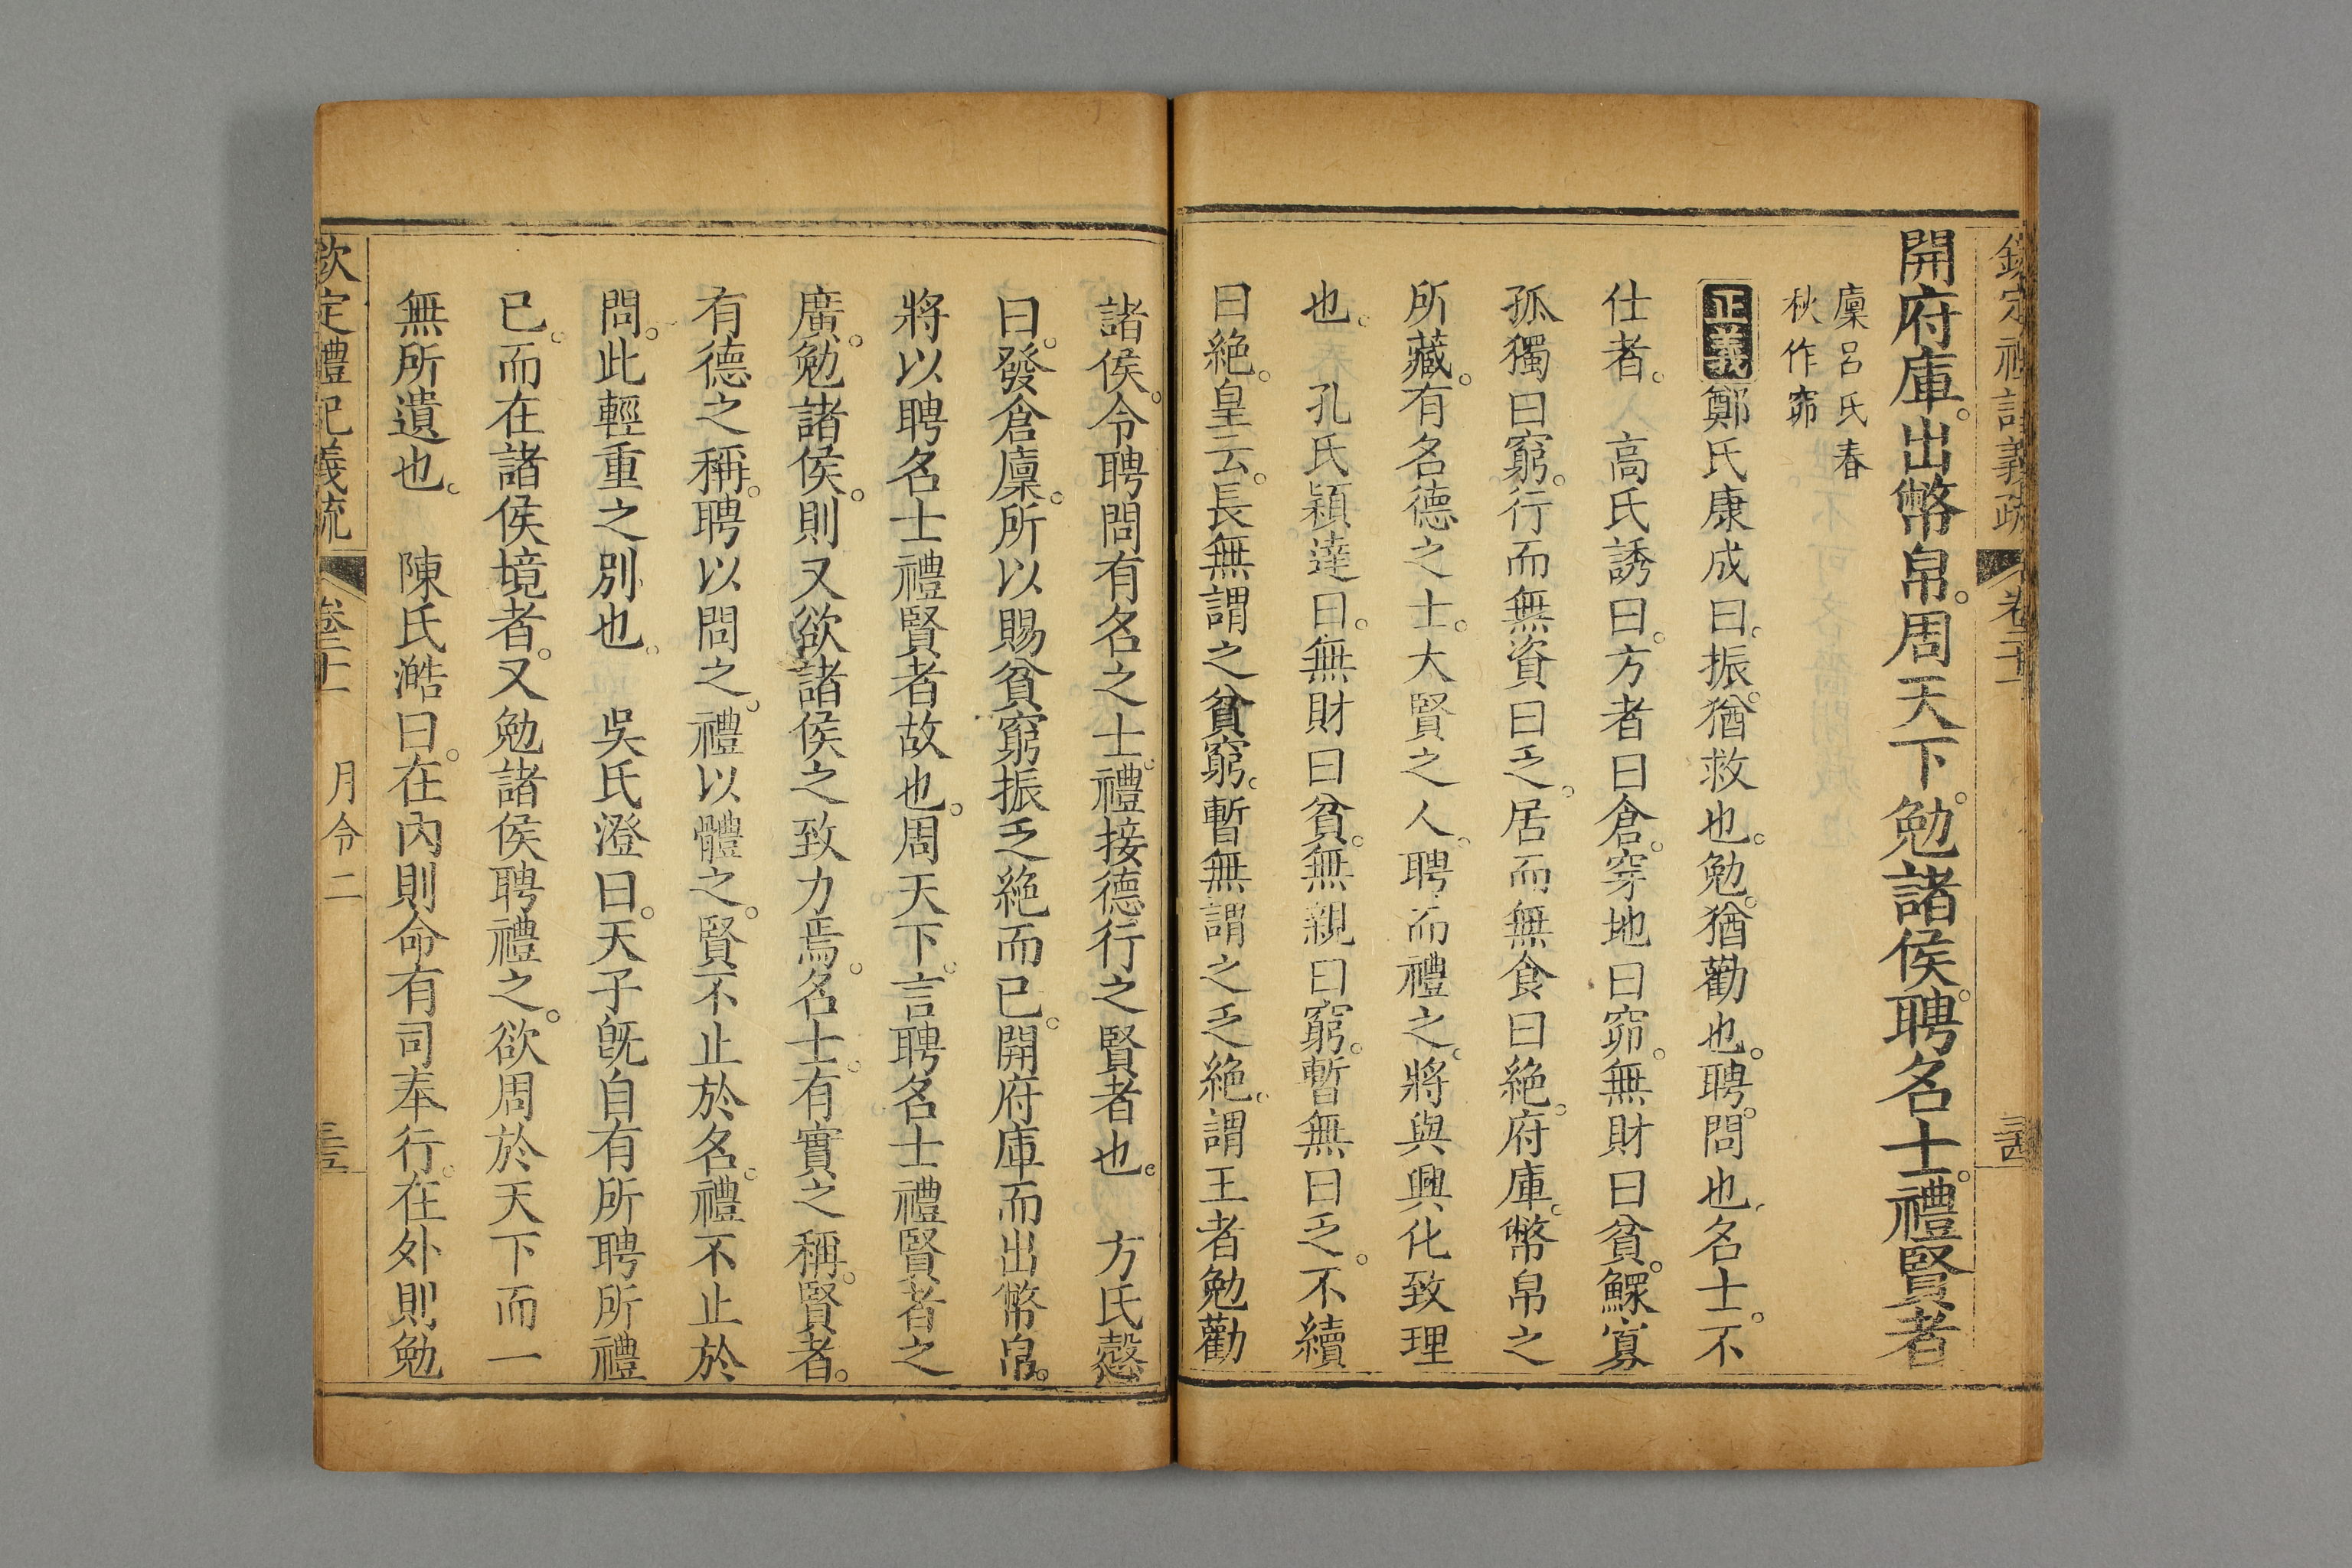 欽定禮記義疏 卷二十一 三四
開府庫。出幣帛。周天下。勉諸侯。聘名士。禮賢者
廩呂氏春
秋作窌
正義鄭氏康成曰。振。猶救也。勉。猶勸也。聘。問也。名士。不
仕者。 高氏誘曰。方者曰倉。穿地曰窌。無財曰貧。鰥寡
孤獨曰窮。行而無資曰乏。居而無食曰絕。府庫。幣帛之
所藏。有名德之士。大賢之人。聘而禮之。將與興化致理
也。 孔氏穎達曰。無財曰貧。無親曰窮。暫無曰乏。不續
曰絕。皇云。長無謂之貧窮。暫無謂之乏絕。謂王者勉勸
諸侯。令聘問有名之士。禮接德行之賢者也。 方氏慤
曰。發倉廩。所以賜貧窮振乏絕而已。開府庫而出幣帛。
將以聘名士禮賢者故也。周天下。言聘名士禮賢者之
廣。勉諸侯。則又欲諸侯之致力焉。名士。有實之稱。賢者。
有德之稱。聘以問之。禮以體之。賢不止於名。禮不止於
問。此輕重之別也。 吳氏澄曰。天子旣自有所聘所禮
已。而在諸侯境者。又勉諸侯聘禮之。欲周於天下而一
無所遺也。 陳氏澔曰。在內則命有司奉行。在外則勉
欽定禮記義疏 卷二十一 月令二 三五